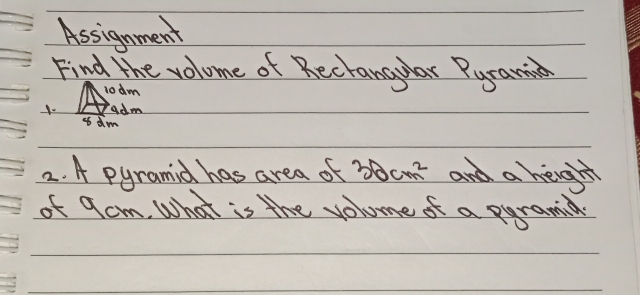 Assignment
Find the volume of Rectangular Pyramid
1. 10 dm
9 dm
8 dm
2. A pyramid has area of 30cm² and a height
of 9cm. What is the volume of a pyramid.